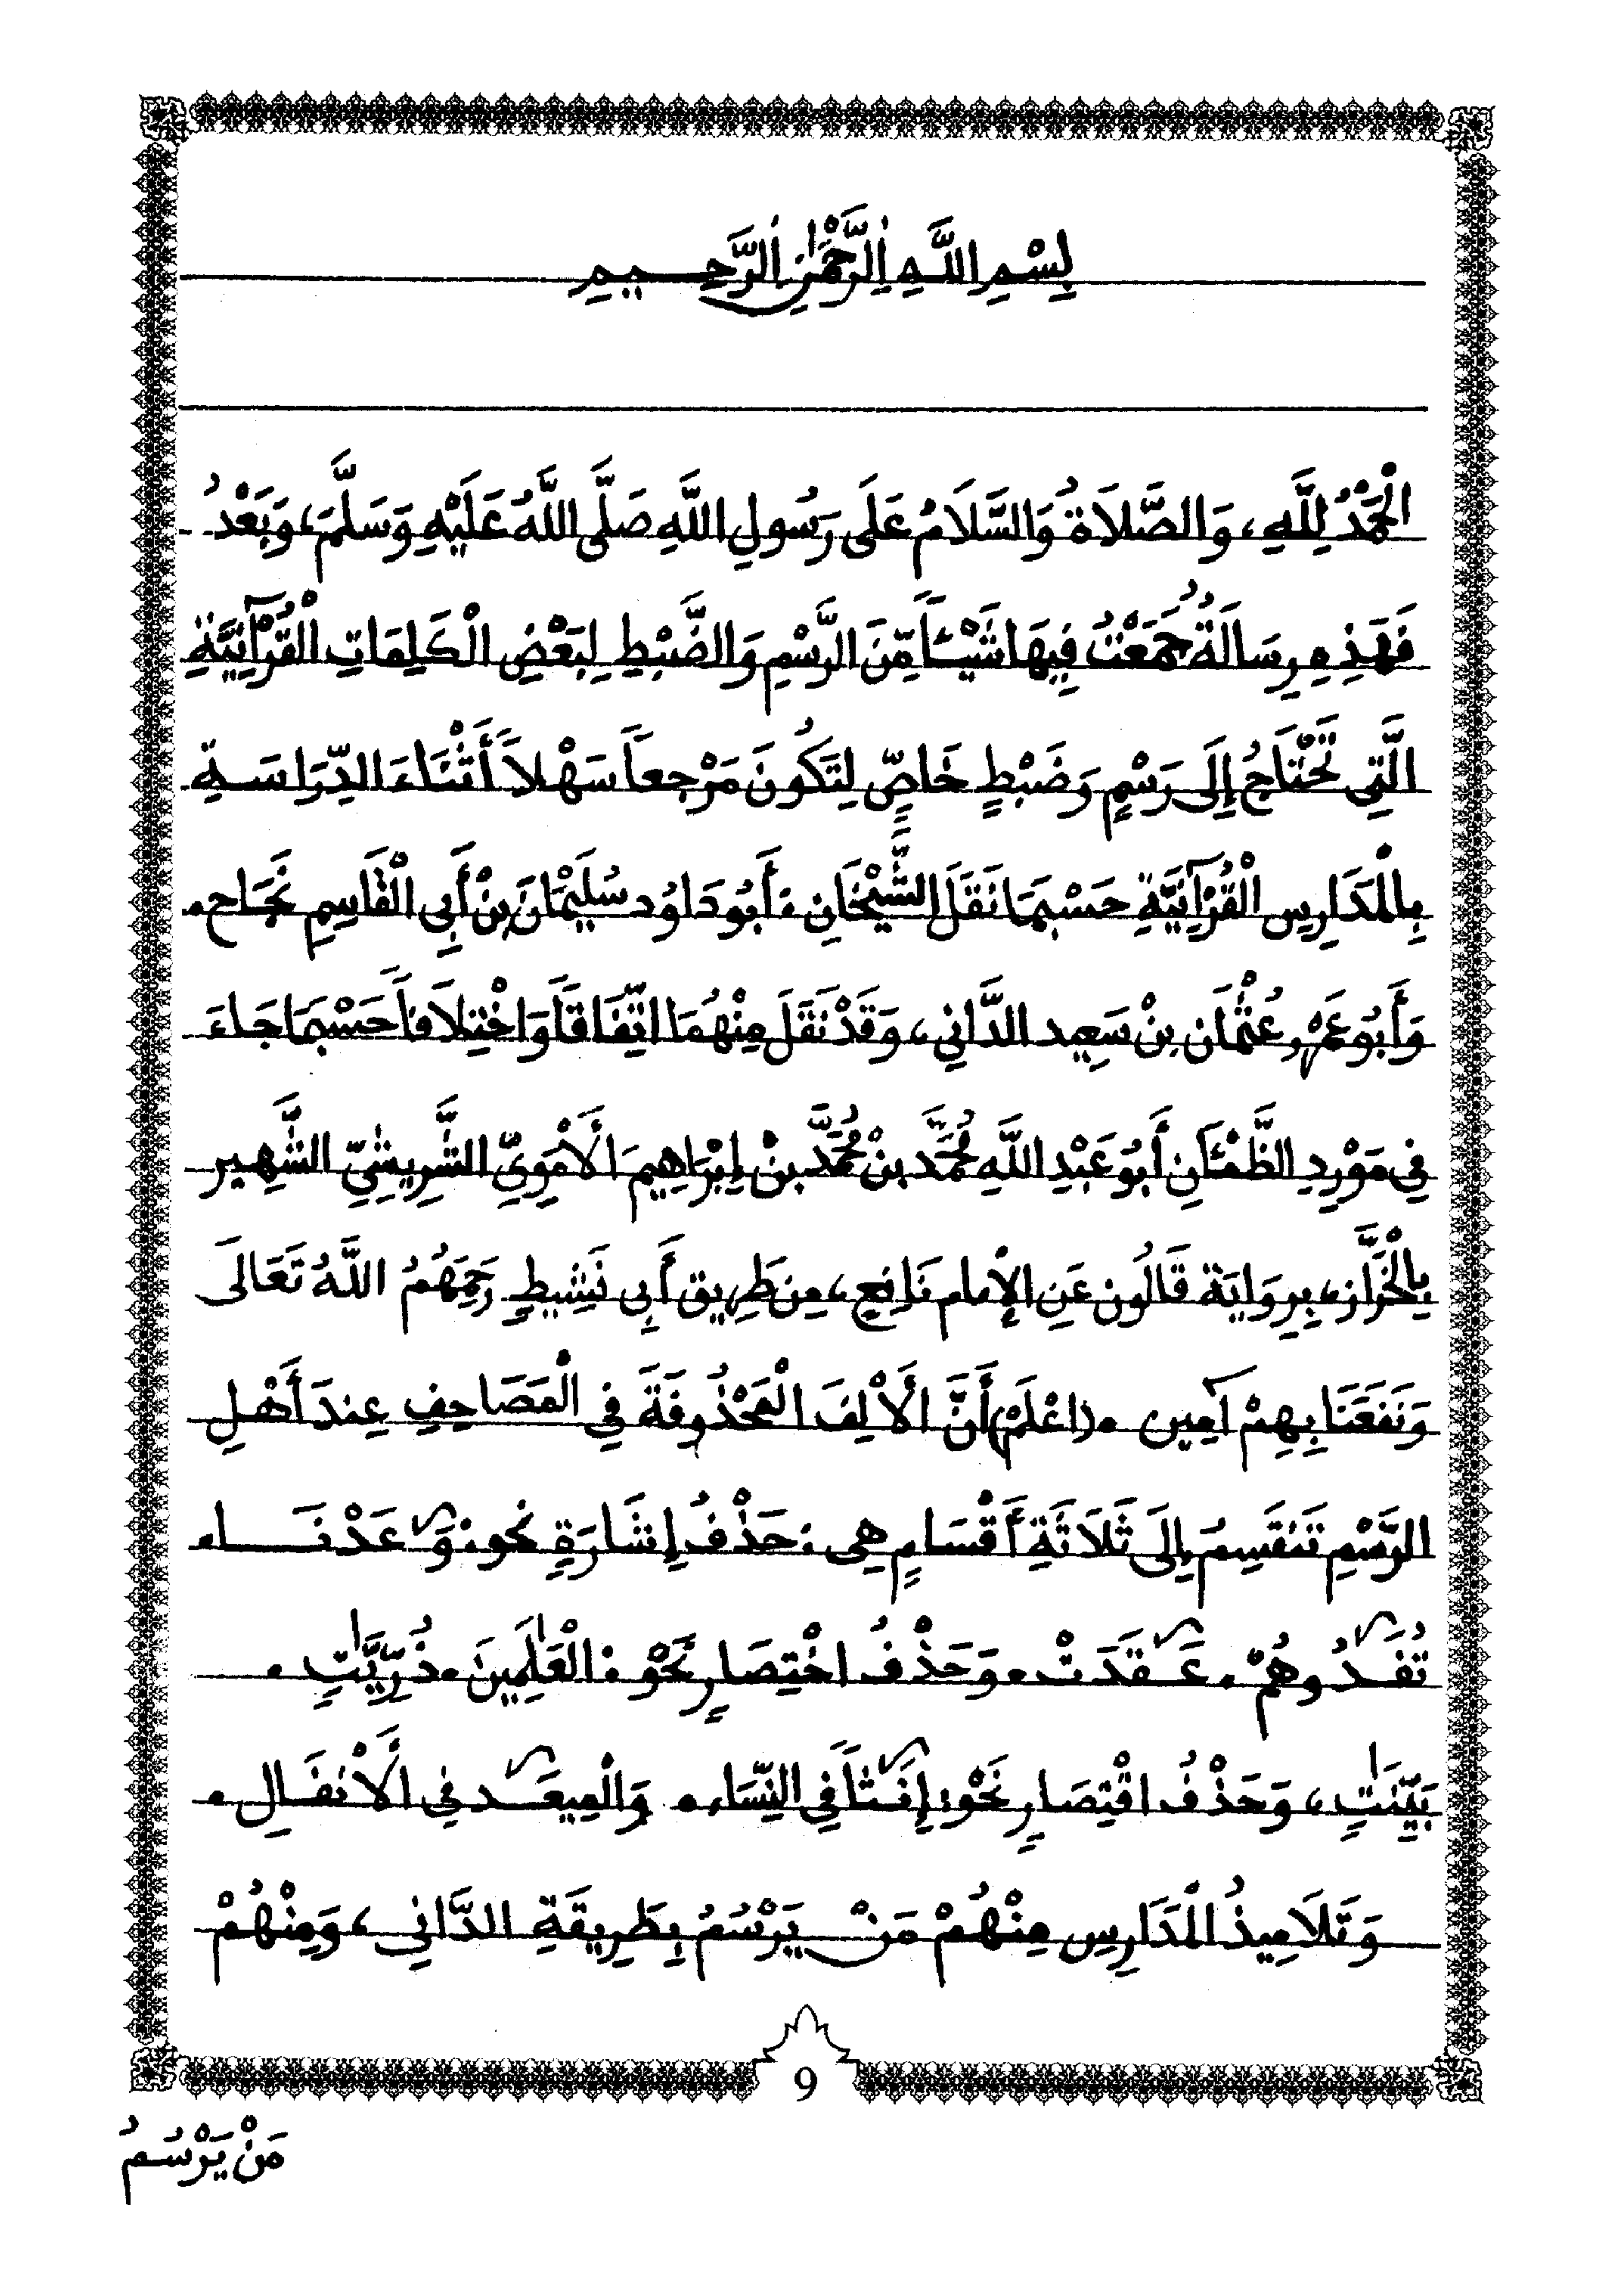 بِسْمِ اللَّهِ الرَّحْمَٰنِ الرَّحِيمِ
الْحَمْدُ لِلَّهِ، وَالصَّلَاةُ وَالسَّلَامُ عَلَى رَسُولِ اللَّهِ صَلَّى اللَّهُ عَلَيْهِ وَسَلَّمَ، وَبَعْدُ
فَهَذِهِ رِسَالَةٌ جَمَعْتُ فِيهَا شَيْئاً مِّنَ الرَّسْمِ وَالضَّبْطِ لِبَعْضِ الْكَلِمَاتِ الْقُرْآنِيَّةِ
الَّتِي تَحْتَاجُ إِلَى رَسْمٍ وَضَبْطٍ خَاصٍّ لِتَكُونَ مَرْجِعاً سَهْلاً أَثْنَاءَ الدِّرَاسَةِ
بِالْمَدَارِسِ الْقُرْآنِيَّةِ حَسْبَمَا نَقَلَ الشَّيْخَانِ: أَبُو دَاوُد سُلَيْمَانَ بِنْ أَبِي الْقَاسِمِ نَجَاح.
وَأَبُو عَمْرٍو عُثْمَان بِنْ سَعِيد الدَّانِي، وَقَدْ نَقَلَ مِنْهُمَا اتِّفَاقاً وَاخْتِلَافاً حَسْبَمَا جَاءَ
فِي مَوْرِدِ الظَّمْئَانِ أَبُو عَبْدِ اللَّهِ مُحَمَّد بنْ مُحَمَّد بنْ إِبْرَاهِيمَ الْأَمَوِيِّ الشَّرِيشِيِّ الشَّهِير
بِالْخَرَّاز، بِرِوَايَة قَالُون عَنِ الإْمام نَافِعٍ، مِن طَرِيق أَبِي نَشِيطٍ رَحِمَهُمُ اللَّهُ تَعَالَى
وَنَفَعَنَا بِهِمْ آمِين .(اعْلَمْ) أَنَّ الْأَلِفَ الْمَحْذُوفَةَ فِي الْمَصَاحِفِ عِندَ أَهْلِ
الرَّسْمِ تَنقَسِمُ إِلَى ثَلَاثَةِ أَقْسَامٍ هِى: حَذْفُ إِشَارَةٍ نحو: وَعَدْنَا.
تُفَدُوهُمْ. عَقَدَتْ. وَحَذْفُ اخْتِصَارٍ نَحْو: الْعَٰلَمِينَ. ذُرِّيَّٰتٍ.
بَيِّنَٰتٍ، وَحَذْفُ اقْتِصَارٍ نَحْو: إِنَثاً فِي النِّسَاء. وَالْمِيعَد فِي الْأَنفَالِ.
وَتَلَامِيذُ الْمَدَارِسِ مِنْهُمْ مَنْ يَرْسُمُ بِطَرِيقَةِ الدَّانِي، وَمِنْهُمْ
9
مَنْ يَرْسُمُ